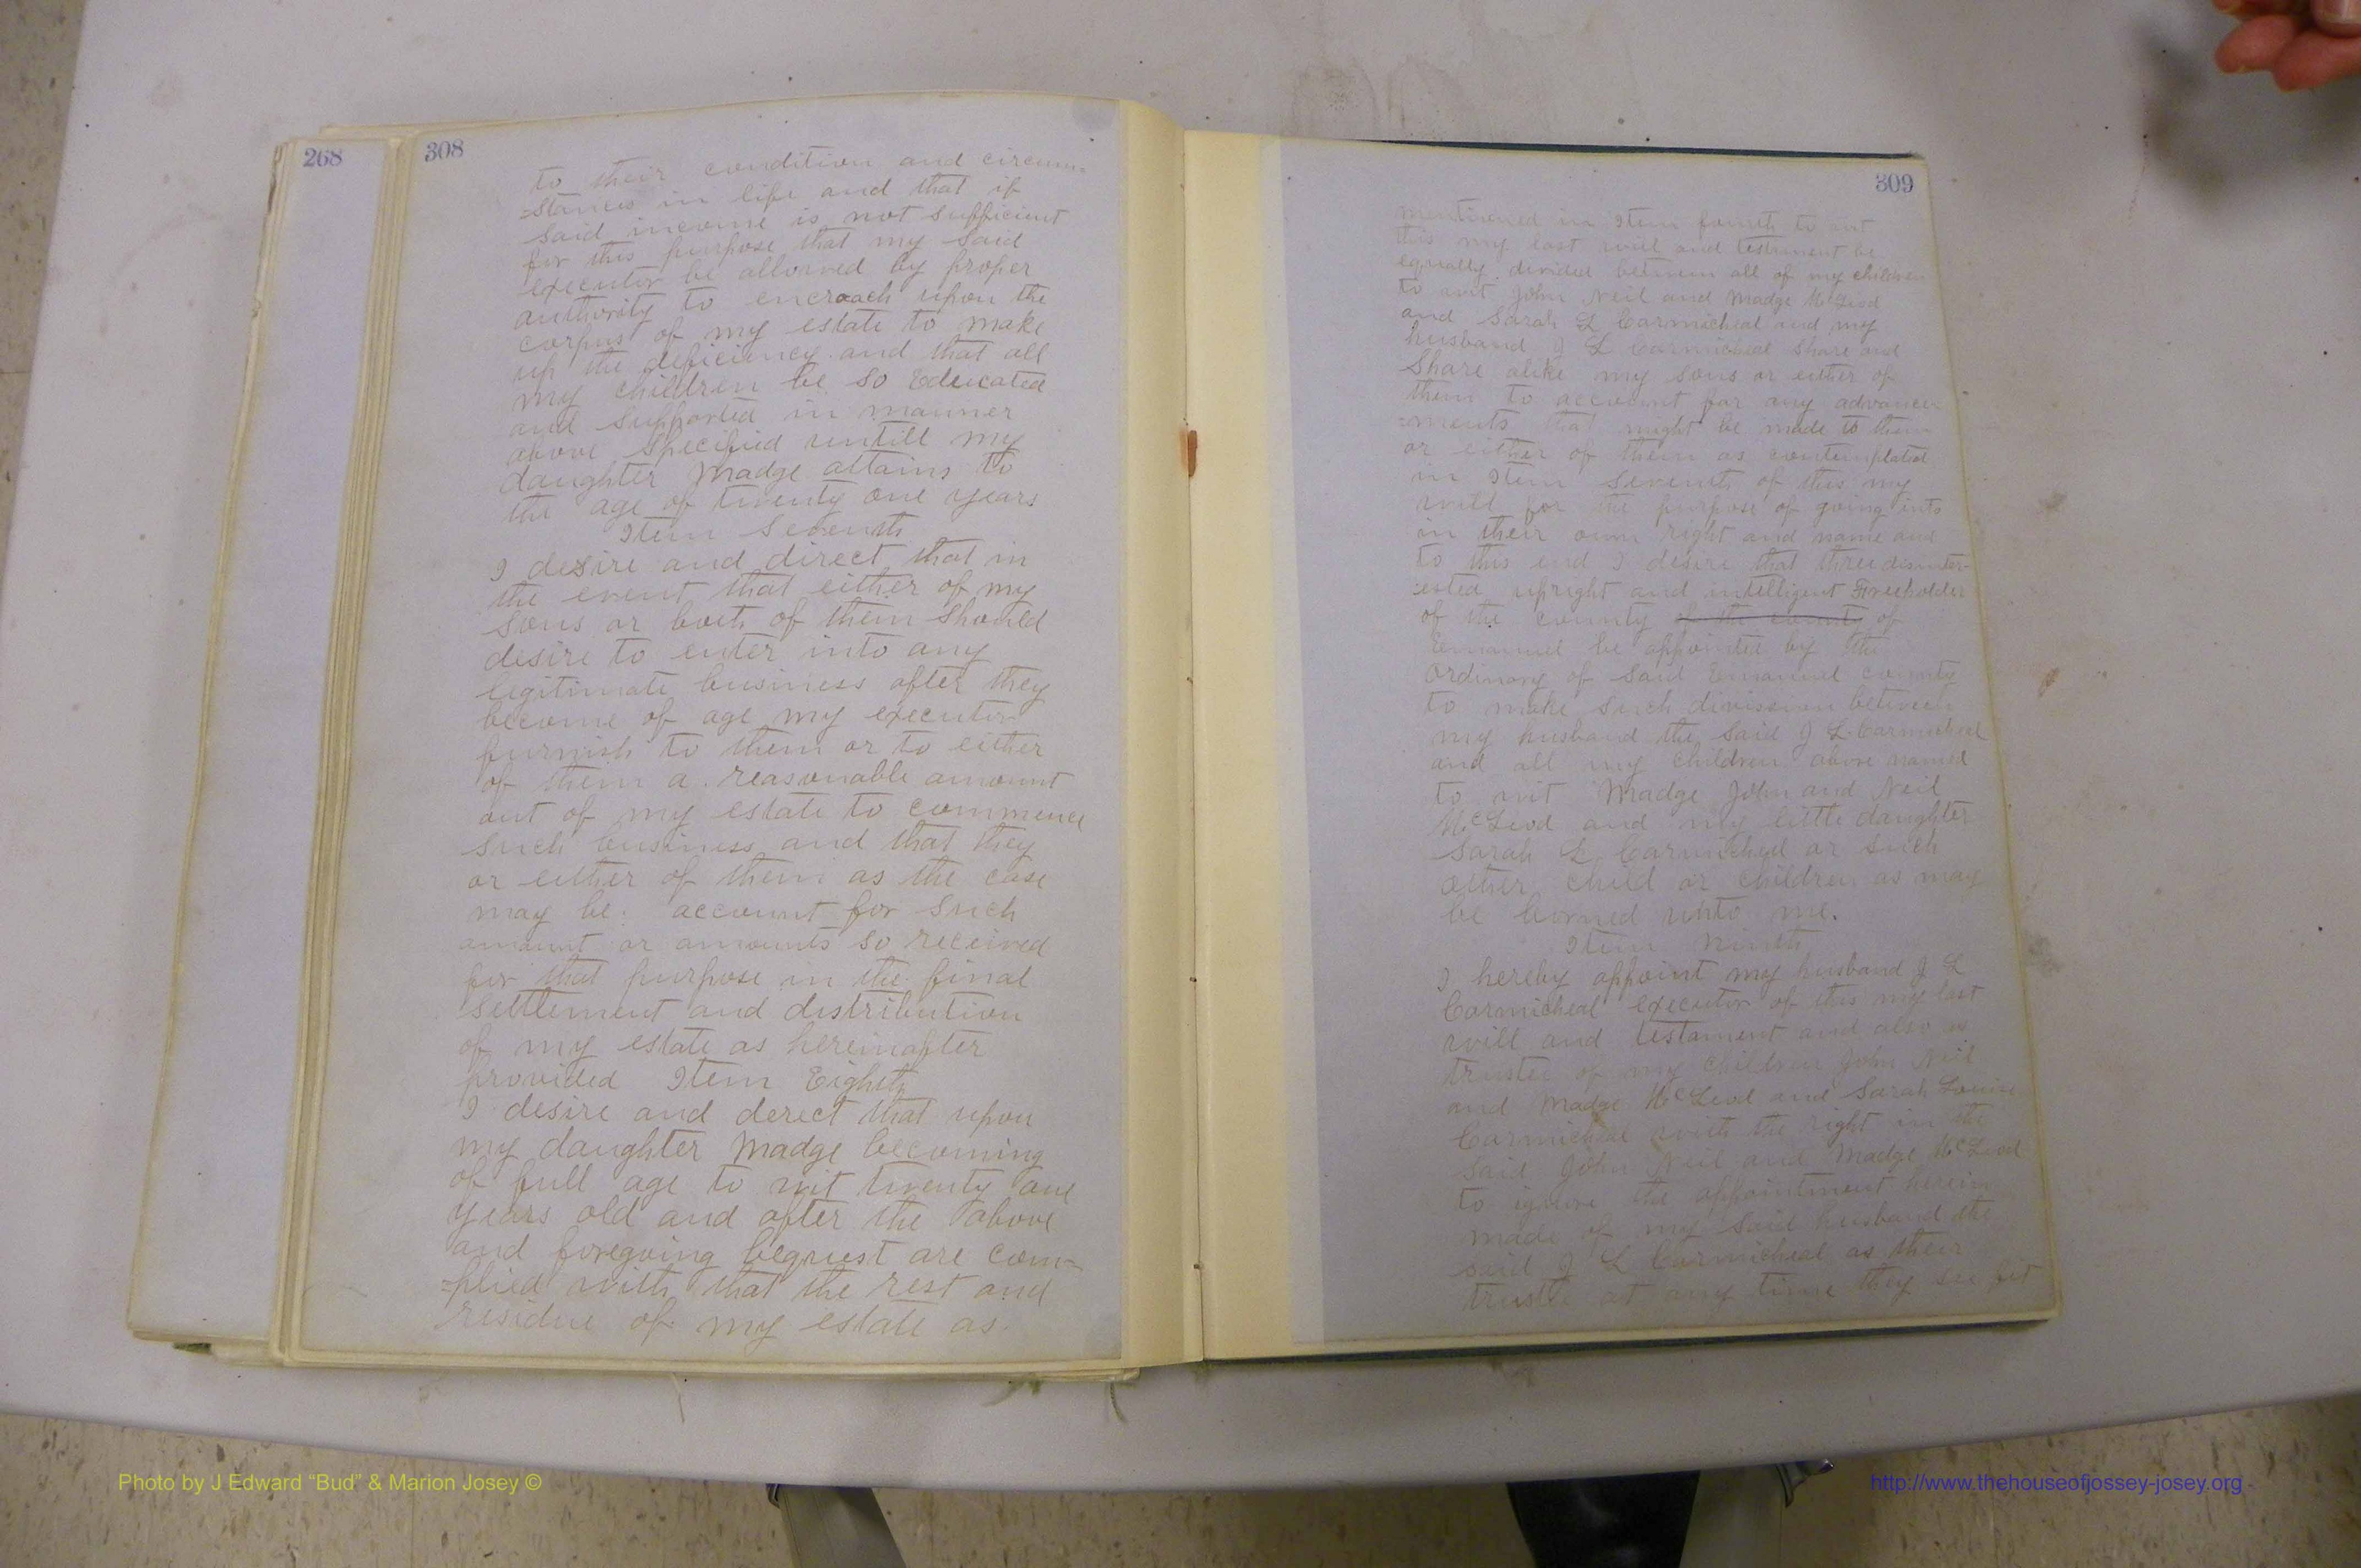 268
308
to their condition and circum-
=stances in life and that if
said income is not sufficient
for this purpose that my said
executor be allowed by proper
authority to encroach upon the
corpust of my estate to make
up the deficiency and that all
my children be so Educated
and supported in manner
above specified untill my
daughter Madge attains to
the age of twenty one years
Item Seventh
I desire and direct that in
the event that either of my
sons or both of them should
desire to enter into any
legitimate business after they
become of age my executor
furnish to them or to either
of them a reasonable amount
out of my estate to commence
such business and that they
or either of them as the case
may be account for such
amount or amounts so received
for that purpose in the final
settlement and distribution
of my estate as hereinafter
provided Item Eighth
I desire and derect that upon
my daughter Madge becoming
of full age to wit twenty one
years old and after the above
and foregoing bequest are com=
=plied with that the rest and
residue of my estate as
309
mentioned in Item fourth to wit
this my last will and testament be
equally divided between all of my children
to wit John Neil and Madge McLeod
and Sarah L Carmicheal and my
husband J L Carmicheal share and
share alike my sons or either of
them to account for any advance
=ments that might be made to them
or either of them as contemplated
in Item seventh of this my
will for the purpose of going into
in their own right and name and
to this end I desire that three disinter-
ested upright and intelligent Freeholder
of the county of the county of
Emanuel be appointed by the
Ordinary of said Emanuel county
to make such division between
my husband the said J L Carmicheal
and all my children above named
to wit Madge John and Neil
McLeod and my little daughter
Sarah L. Carmicheal or such
other child or children as may
be borned unto me.
Item Ninth
I hereby appoint my husband J L
Carmicheal executor of this my last
will and testament and also as
trustee of my children John Neil
and Madge McLeod and Sarah Louise
Carmicheal with the right in the
said John Neil and Madge McLeod
to ignore the appointment herein
made of my said husband the
said J L Carmicheal as their
trustee at any time they see fit
Photo by J Edward “Bud” & Marion Josey ©
http://www.thehouseofjossey-josey.org